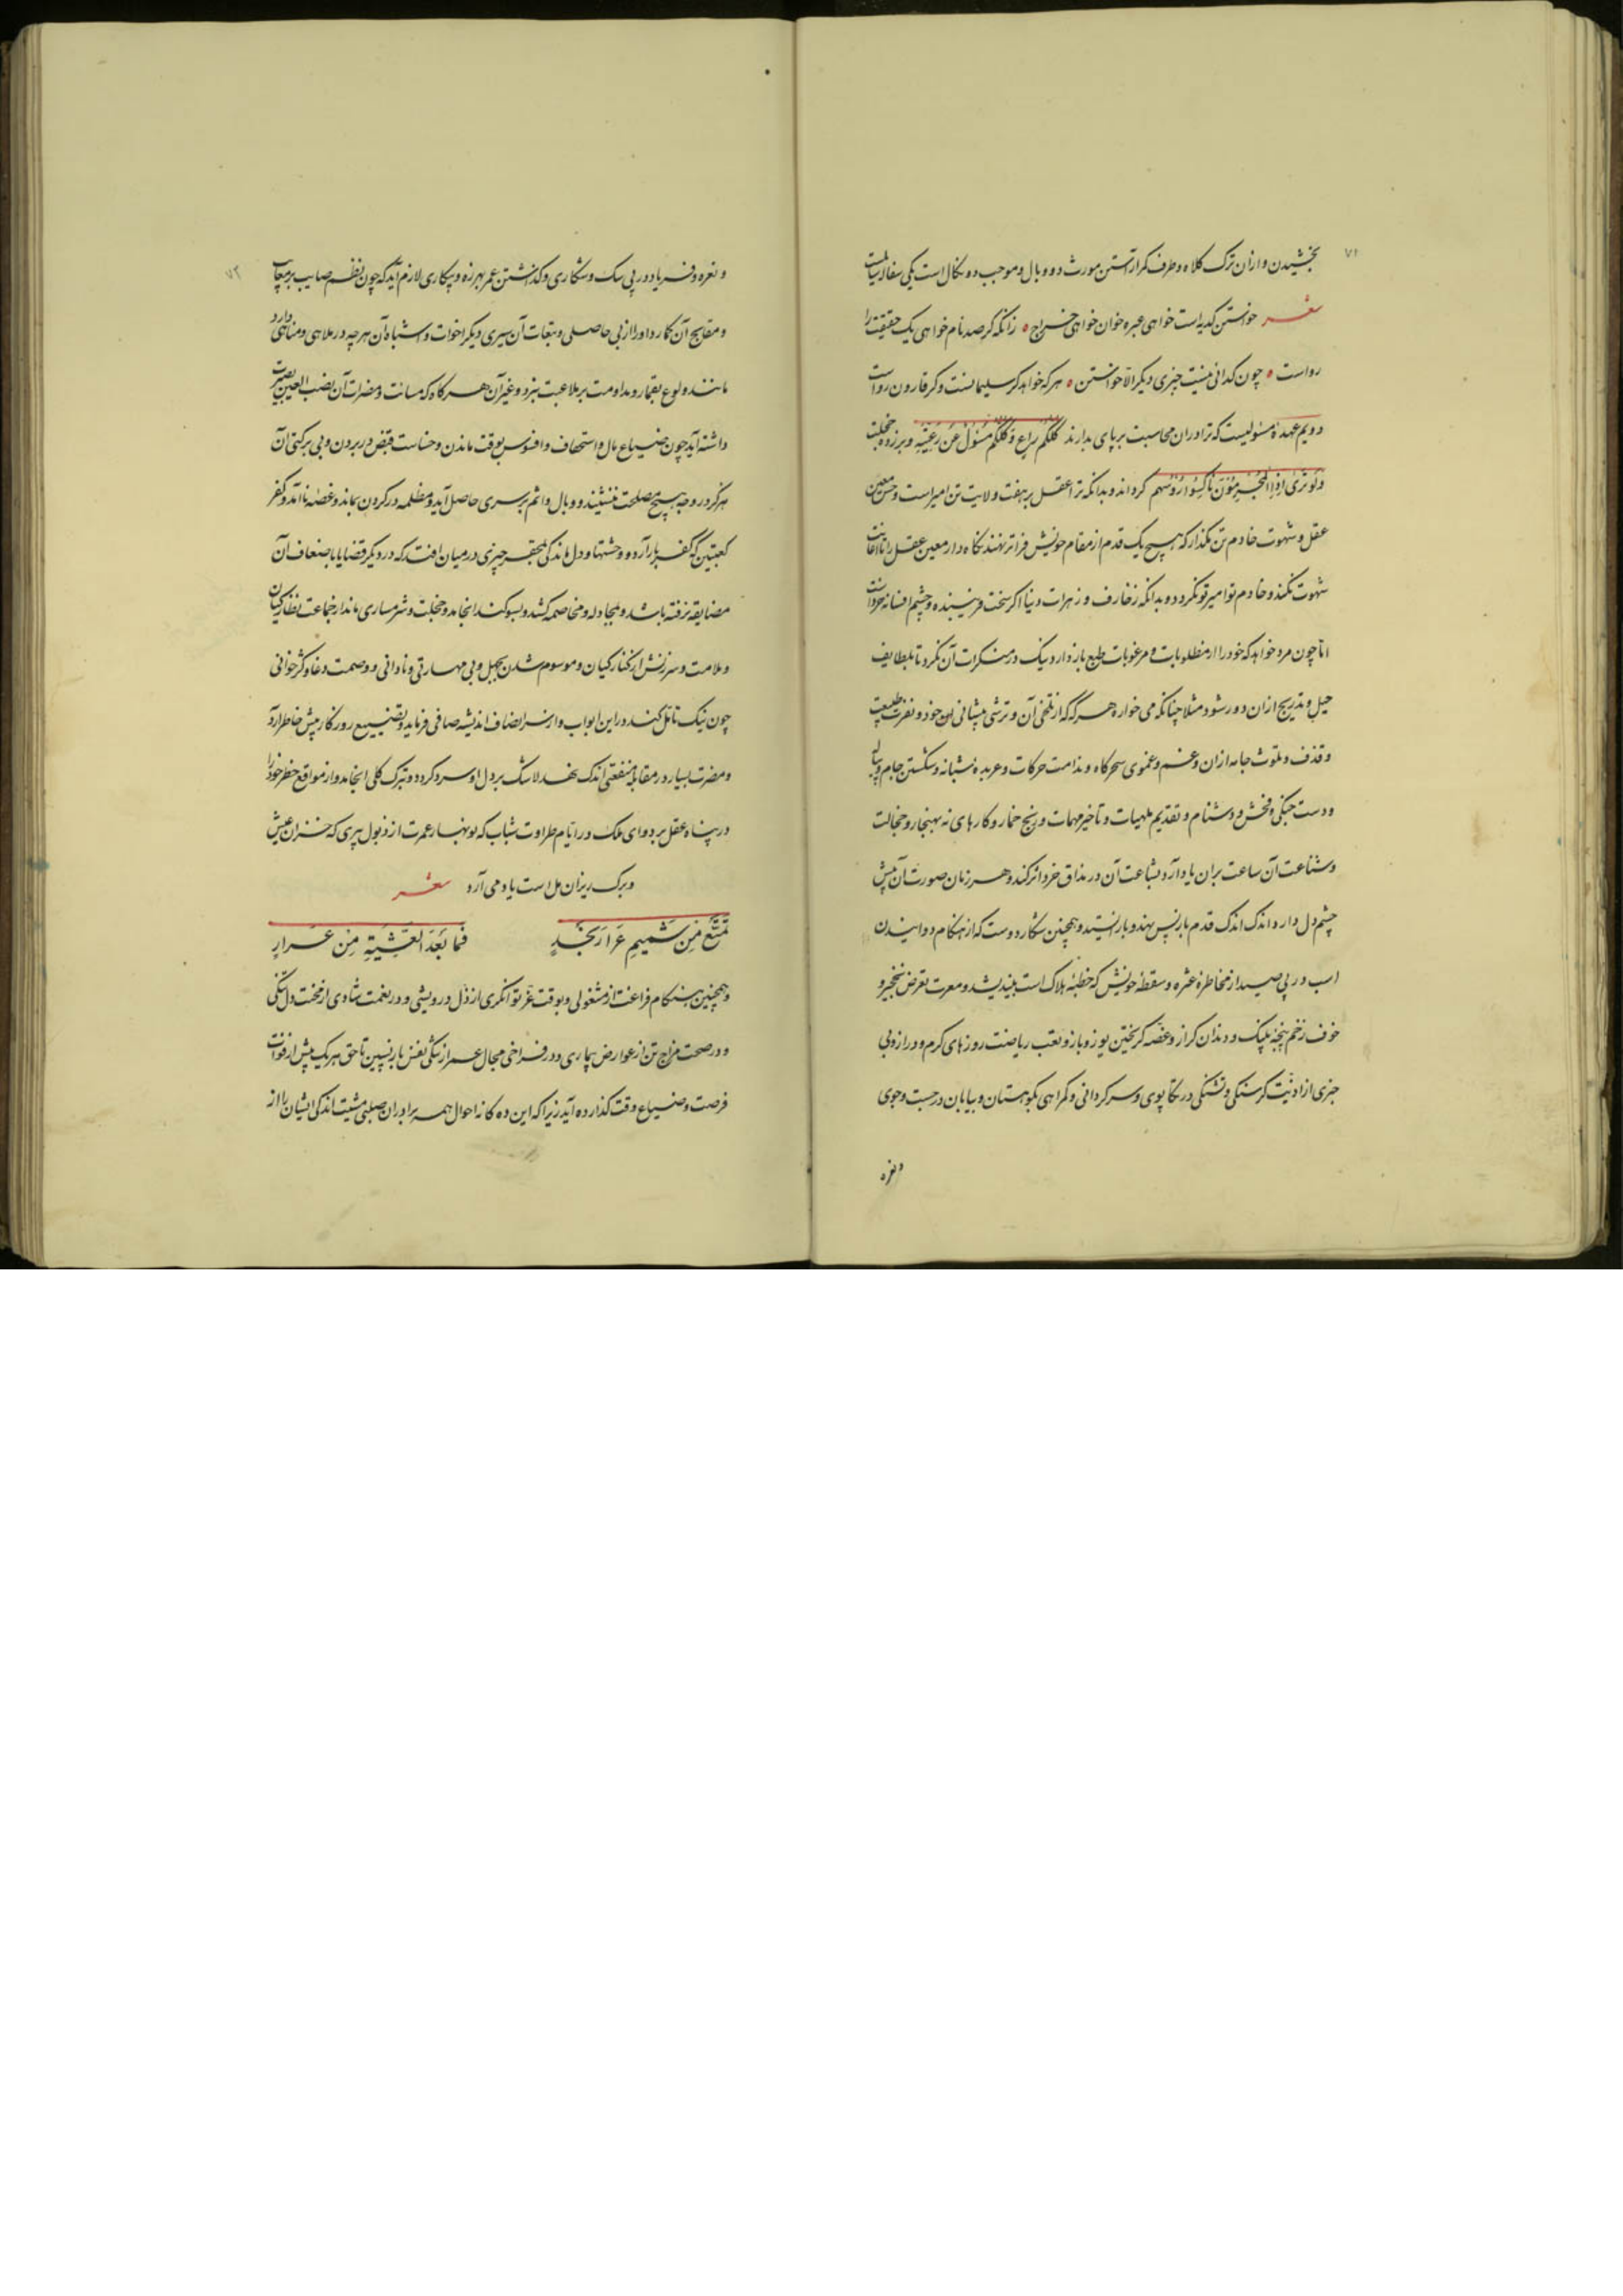 ۷۱
بخشیدن و ازان ترک کلاه و طرف کمر آراستن مورث دو وبال و موجب دو نکال است یکی
شعر خواستن کدیه است خواهی عبره خوان خواهی خراج ه زانکه کر صد نام خواهی یک حقیقت را
رواست ه چون کدائی نیست چیزی دیکر الا خواستن ه هرکه خواهد کر سلیمانست و کر قارون رواست
دویم عهدهٔ مسئولیست که ترا دران محاسبت برپای بدارند کُلُّکُم راعٍ وَ کُلُّکُم مَسْئُولٌ عَن رَعِیَّتِهِ و بر زده خجلت
وَلَو تَریٰ اِذِ المُجرِمُونَ ناکِسُوا رُؤُسِهِم کرداند و بدانکه ترا عقل بر هفت ولایت تن امیر است و حس معین
عقل و شهوت خادم تن مکذار که هیچ یک قدم از مقام خویش فراتر نهند نکاه دار معین عقل را تا اعانت
شهوت نکند و خادم تو امیر تو نکردد و بدانکه زخارف و زهرات دنیا اکر سخت فریبنده و چشم افسانه خرد است
اما چون مرد خواهد که خود را از مطلوبات و مرغوبات طبع باز دارد نیک در منکرات آن نکرد تا بلطایف
حیل و تدریج ازان دور شود مثلا چنانکه می خواره هرکه که از تلخی آن و ترشی پیشانی این خود و نفرت طبیعت
و قذف و ملوث جامه ازان و غم و عنوی سحرکاه و ندامت حرکات و عربده شبانه و شکستن جام و پیاله
و دست جنکی و فحش و دشنام و تقدیم ملهیات و تأخیر مهمات و رنج خمار و کارهای نه بهنجار و خجالت
و شناعت آن ساعت بران یاد آرد بشاعت آن در مذاق خرد اثر کند و هر زمان صورت آن پیش
چشم دل دارد اندک اندک قدم باز پس نهد و باز ایستد و همچنین شکار دوست که از هنکام دوانیدن
اسب در پی صید از مخاطرهٔ عثره و سقطهٔ خویش که خطبهٔ هلاک است بیندیشد و معرت تعرض نخجیر و
خوف زخم پنجهٔ پلنک و دندان کراز و غصهٔ کریختن یوز و باز و تعب ریاضت روزهای کرم و دراز و بی
خبری از اذیت کرسنکی و تشنکی در تکاپوی و سرکردانی و کمراهی بکوهستان و بیابان در جست و جوی
و نعره
۷۲
و نعره و فریاد در پی سک و شکاری و کذاشتن عمر بهرزه و بیکاری لازم آید که چون نظم صایب بر معایب
و مقابح آن کمارد او را از بی حاصلی و تبعات آن سیری دیکر اخوات و اشباه آن هرچه در ملاهی و مناهی دارد
مانند ولوع بقمار و مداومت بر ملاعبت نرد و غیر آن هرکاه که مساآت و مضرات آن نصب العین بصیرت
داشته آید چون ضیاع مال و استخفاف و افسوس بوقت ماندن و خساست قبض در بردن و بی برکتی آن
هرکز در وجه هیچ مصلحت ننشیند و وبال و اثم بر سری حاصل آید و مظلمه در کردن بماند و غصه نا آمد و کفر
کعبتین که کفر بار آرد و وحشتها و دل ماندکی بمحقر چیزی در میان افتد که در دیکر قضایا با ضعاف آن
مضایقه نرفته باشد و بمجادله و مخاصمه کشد و بسوکند انجامد و خجلت و شرمساری ماند از جماعت نظارکیان
و ملامت و سرزنش از کنارکیان و موسوم شدن بجهل و بی مهارتی و نادانی و وصمت دغا و کژ خوانی
چون نیک تأمل کند در این ابواب و از سر انصاف اندیشه صافی فرماید و تضییع روزکار پیش خاطر آرد
و مضرت بسیار در مقابلهٔ منفعتی اندک نهد لاشک بر دل او سرد کردد و بترک کلی انجامد و از مواقع خطر خود را
در پناه عقل برد وای ملک در ایام طراوت شباب که نوبهار عمرت از ذبول پیری که خزان عیش
و برک ریزان امل است یاد می آرد شعر
تَمَتَّع مِن شَمیمِ عَرارِ نَجدٍ فَما بَعدَ العَشِیَّةِ مِن عَرارٍ
و همچنین هنکام فراغت از مشغولی و بوقت عزّ توانکری از ذلّ درویشی و در نعمت شادی از محنت دل تنکی
و در صحت مزاج تن از عوارض بیماری و در فراخی مجال عمر از تنکی نفس باز پسین تا حق هریک پیش از فوات
فرصت و ضیاع وقت کذارده آید زیرا که این ده کانه احوال همه برادران صلبی مشیت اند که ایشان را از